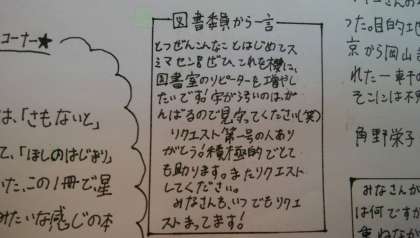 コーナー★
は、「さもないと」
て、「ほしのはじまり」
いた、この1冊で星
みたいな感じの本
図書委員から一言
とつぜんこんなことはじめてス
ミマセン!!ぜひ、これを機に、
図書室のリピーターを増やし
たいです!字がきたないのは、が
んばるので見守ってください(笑)
リクエスト第一号の人あり
がとう!積極的でとて
も助ります。またリクエスト
してください。
みなさんも、いつでもリクエ
ストまってます!
った。目的地
京から岡山
れた一車
そこには不
角野栄子
みなさんが
は何ですか
重ねなが